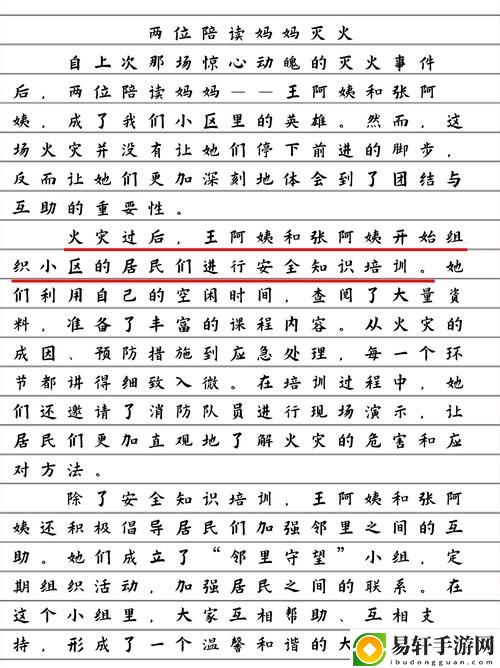 两位陪读妈妈灭火
自上次那场惊心动魄的灭火事件
后，两位陪读妈妈——王阿姨和张阿
姨，成了我们小区里的英雄。然而，这
场火灾并没有让她们停下前进的脚步，
反而让她们更加深刻地体会到了团结与
互助的重要性。
火灾过后，王阿姨和张阿姨开始组
织小区的居民们进行安全知识培训。她
们利用自己的空闲时间，查阅了大量资
料，准备了丰富的课程内容。从火灾的
成因、预防措施到应急处理，每一个环
节都讲得细致入微。在培训过程中，她
们还邀请了消防队员进行现场演示，让
居民们更加直观地了解火灾的危害和应
对方法。
除了安全知识培训，王阿姨和张阿
姨还积极倡导居民们加强邻里之间的互
助。她们成立了“邻里守望”小组，定
期组织活动，加强居民之间的联系。在
这个小组里，大家互相帮助、互相支
持，形成了一个温馨和谐的大
易轩手游网
ibudongguan.com